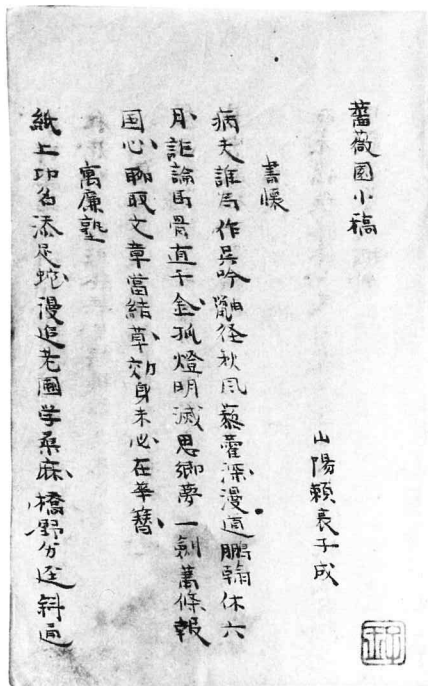 薔薇園小稿
山陽頼襄子成
書懐
病夫誰為作呉吟鼬径秋風藜藿深漫道鵬翰休六
月詎論馬骨直千金孤燈明滅思郷夢一劍蕭條報
国心聊取文章當結草效身未必在華簪
寓廉塾
紙上功名添足蛇漫追老圃学桑麻橋野分逕斜通